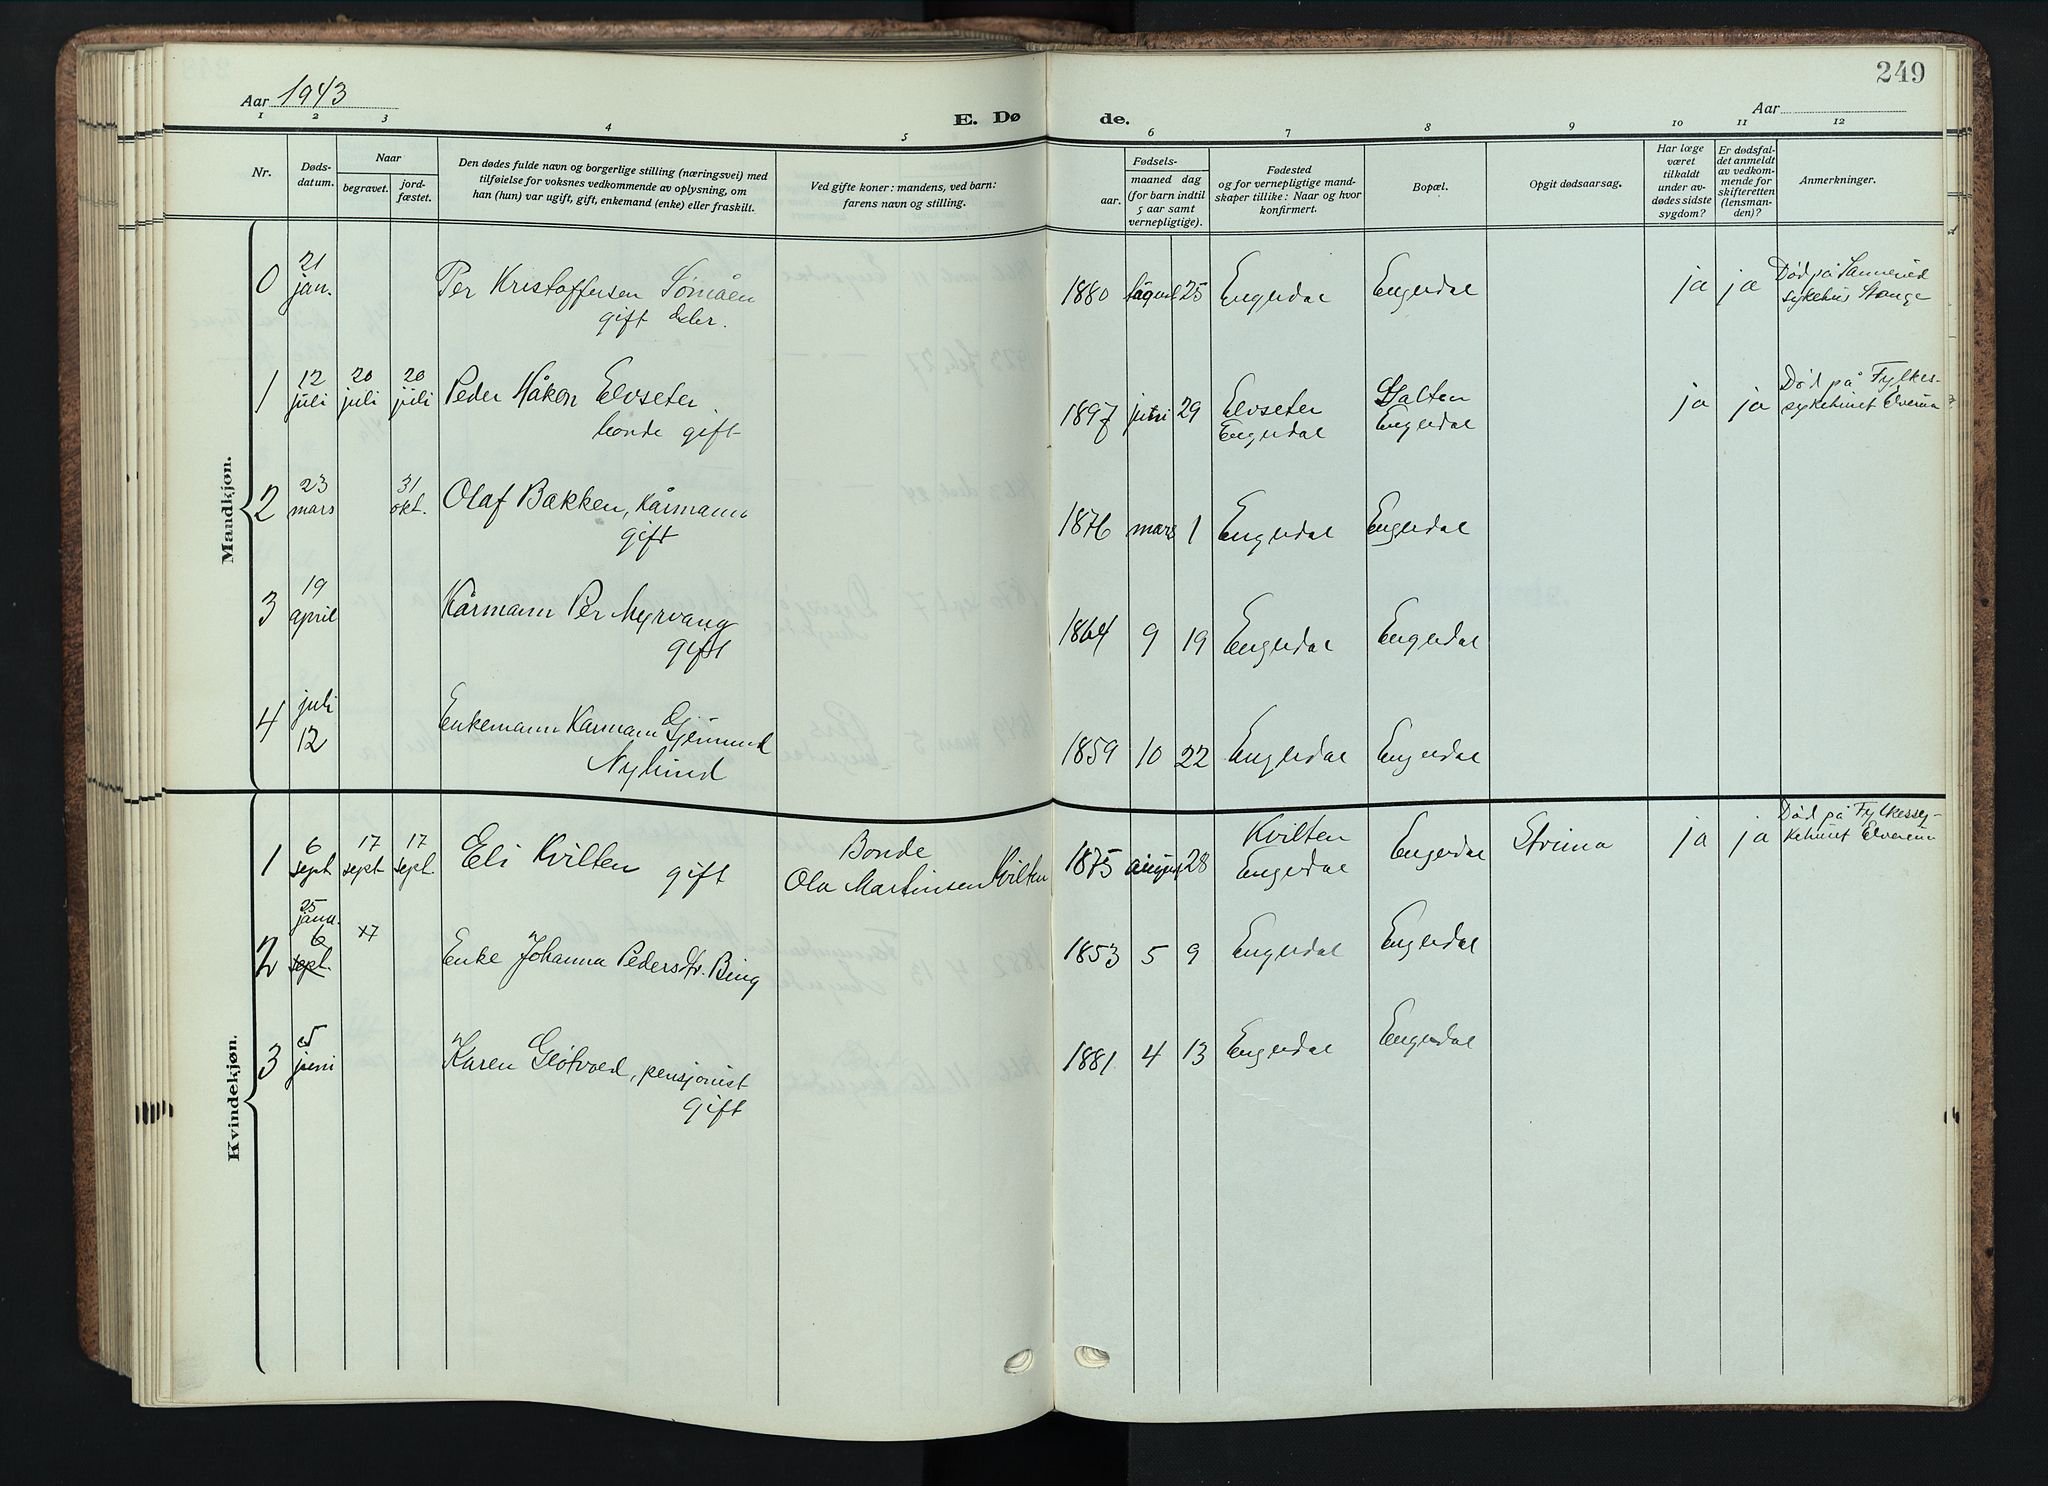 249
Aar 1943
Aar
E. Dø de.
1 2 3 4 5 6 7 8 9 10 11 12
Nr.
Døds-
datum.
Naar
begravet.
jord-
fæstet.
Den dødes fulde navn og borgerlige stilling (næringsvei) med
tilføielse for voksnes vedkommende av oplysning, om
han (hun) var ugift, gift, enkemand (enke) eller fraskilt.
Ved gifte koner: mandens, ved barn:
farens navn og stilling.
Fødsels-
aar.
maaned dag
(for barn indtil
5 aar samt
vernepligtige).
Fødested
og for vernepligtige mand-
skaper tillike: Naar og hvor
konfirmert.
Bopæl.
Opgit dødsaarsag.
Har læge
været
tilkaldt
under av-
dødes sidste
sygdom?
Er dødsfal-
det anmeldt
av vedkom-
mende for
skifteretten
(lensman-
den)?
Anmerkninger.
Maandkjøn.
0 21 jan. Per Kristoffersen Sømåen
gift
1880 25 Engerdal Engerdal ja ja Død på Sanderud
sykehus Stange
1 12 juli 20 juli 20 juli Peder Håkon Elvseter
bonde gift
1897 juni 29 Elvseter
Engerdal
Engerdal ja ja Død på Fylkes-
sykehuset Elverum
2 23 mars 31 okt. Olaf Bakken, Kårmann
gift
1876 mars 1 Engerdal Engerdal
3 19 april Kårmann Per Myrvang
gift
1864 9 19 Engerdal Engerdal
4 juli 12 Enkemann Kårmann Gjermund
Nylund
1859 10 22 Engerdal Engerdal
Kvindekjøn.
1 6 sept 17 sept 17 sept. Eli Kvilten
gift
Bonde
Ola Martinsen Kvilten
1875 august 28 Kvilten
Engerdal
Engerdal Struma ja ja Død på Fylkessy-
kehuset Elverum
2 25 janu. 6 sept. 17 Enke Johanna Pedersdtr. Bing
1853 5 9 Engerdal Engerdal
3 5 juni Karen Gløtvold, pensjonist
gift
1881 4 13 Engerdal Engerdal